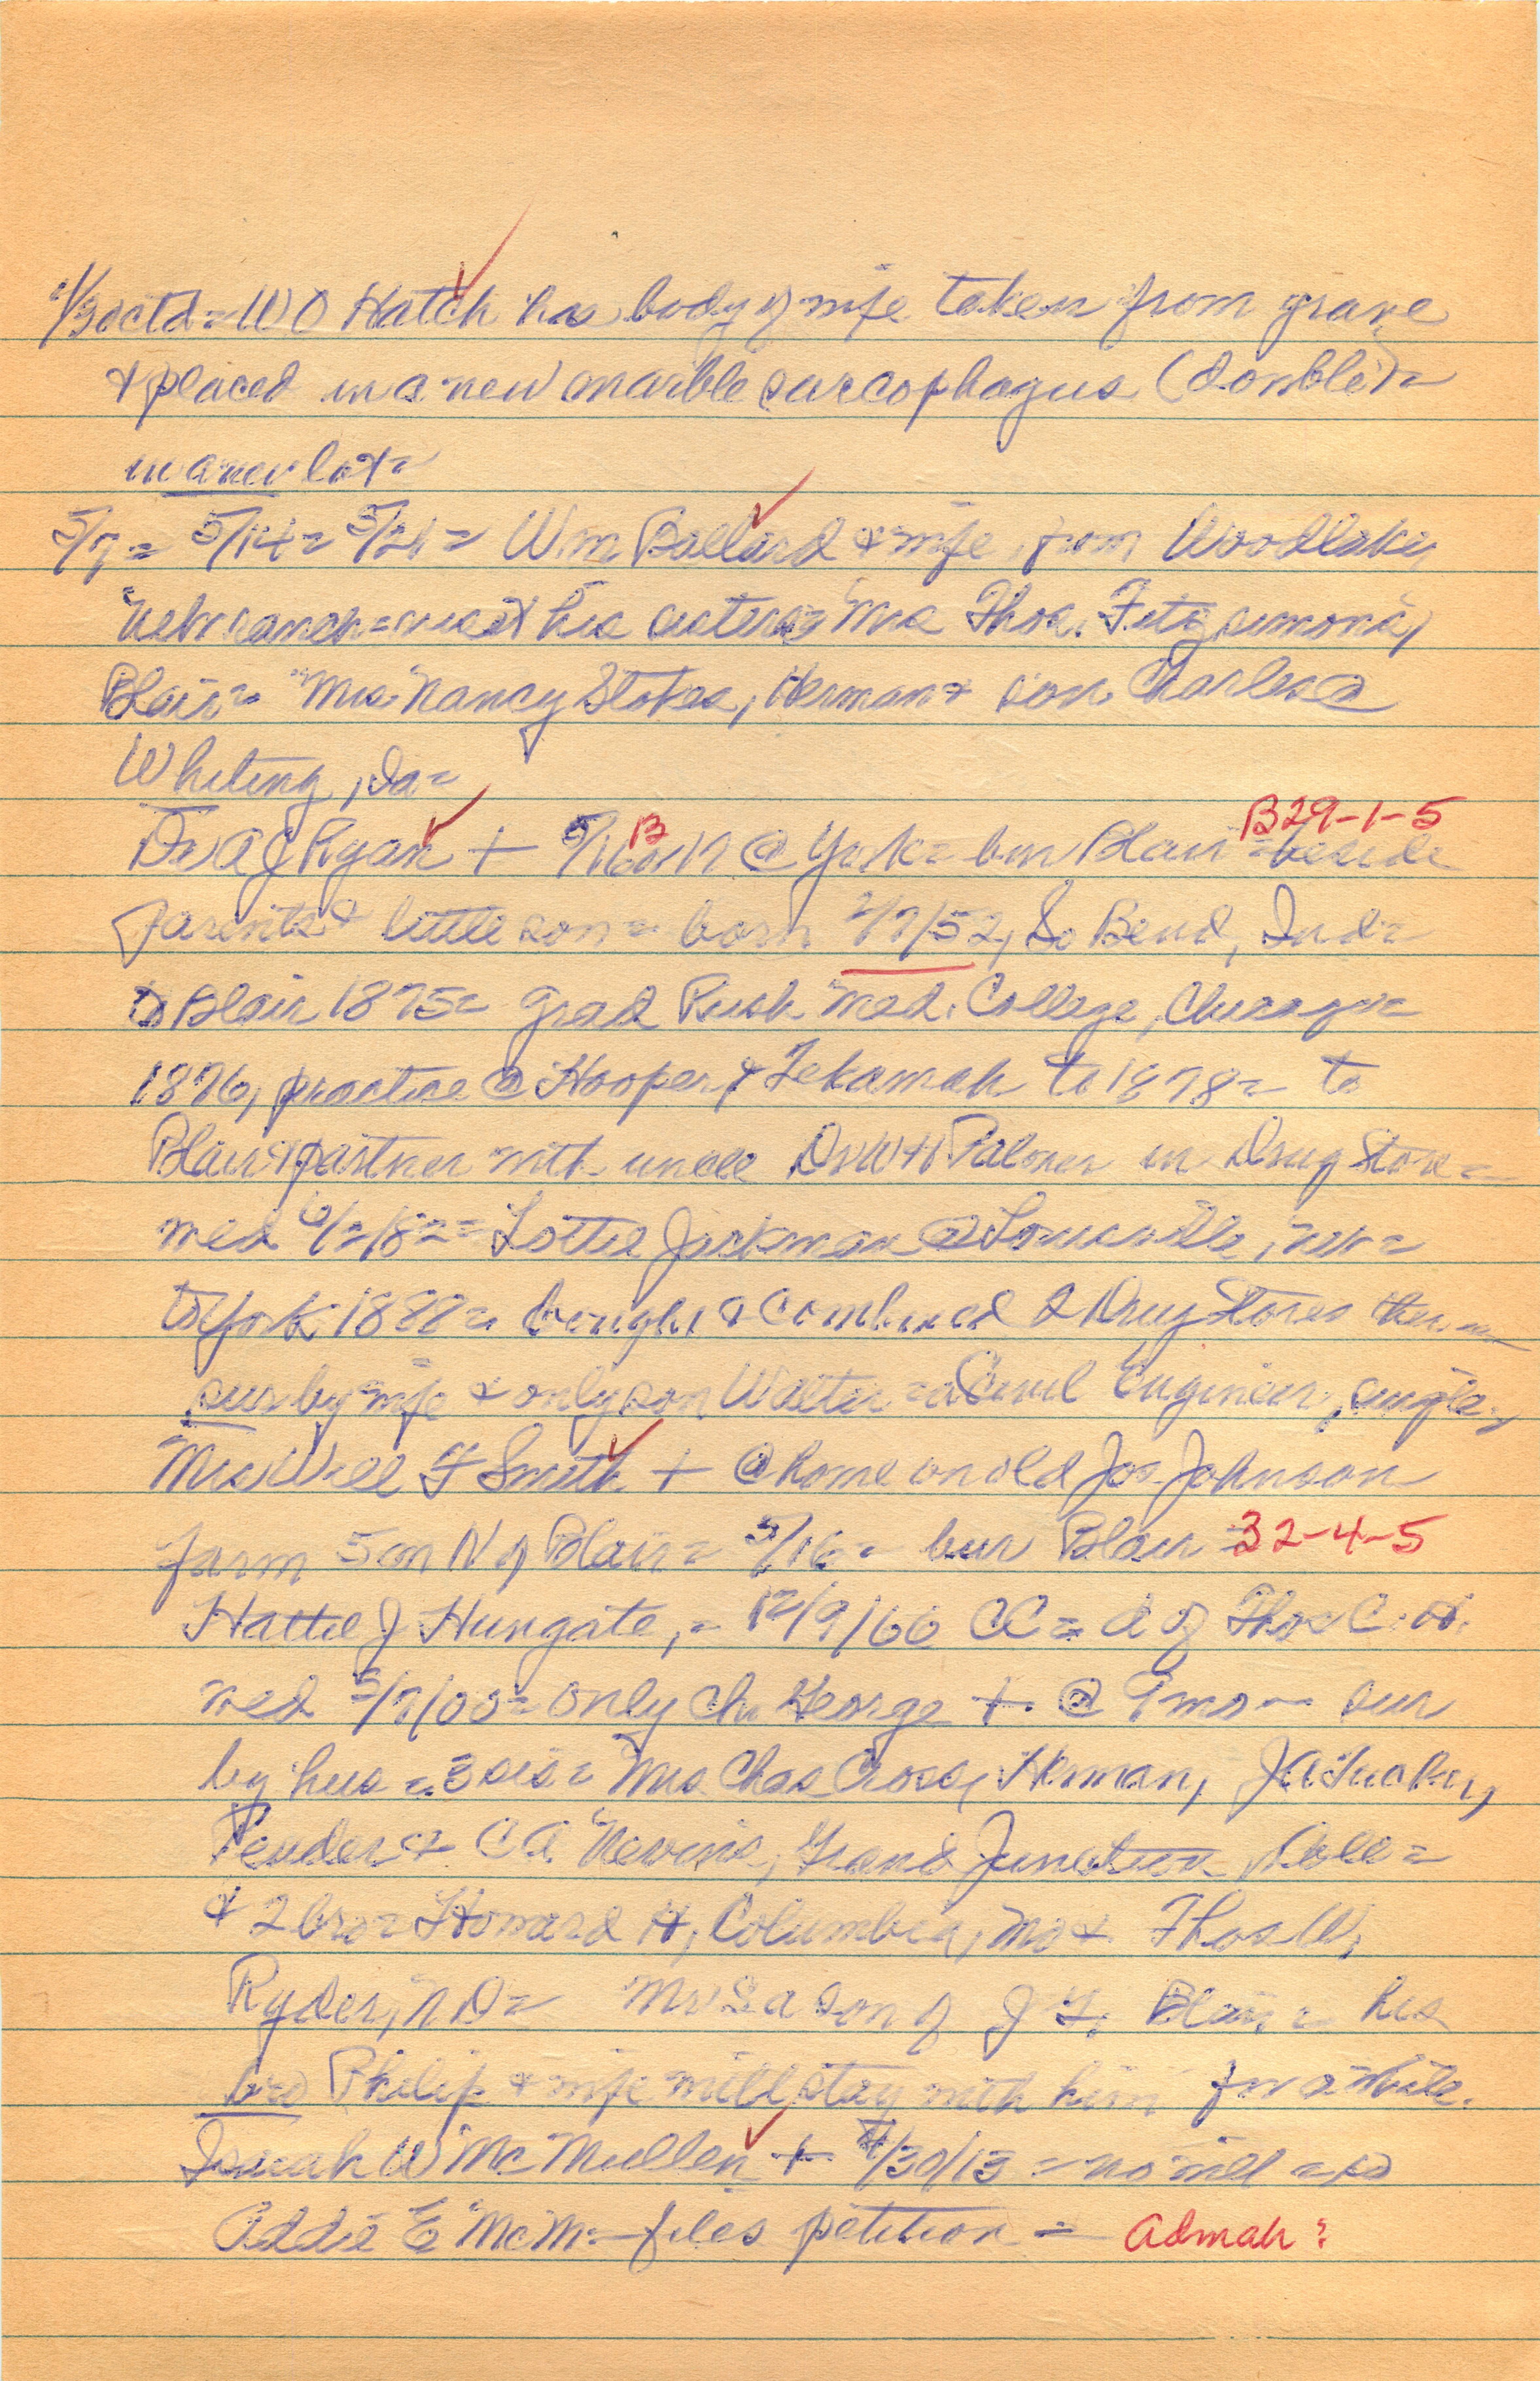 W O Hatch has body of wife taken from grave
& placed in a new marble sarcophagus (double) =
in a new lot =
5/7 = 5/14 = 5/21 = Wm Ballard & wife, from Woodlake,
Neb ranch = visit his sisters Mrs Thos. Fitzsimons,
Blair = Mrs. Nancy Stokes, Herman & son Charles @
Whiting, Ia =
B29-1-5
Dr A J Ryan + 5/16 @ York = bur Blair = beside
Parents & little son = born 2/7/52, So Bend, Ind =
to Blair 1875 = grad Rush Med. College, Chicago =
1876, practice @ Hooper & Tekamah to 1878 = to
Blair & partner with uncle Dr W H Palmer in Drug Store =
wed 6/2/82 = Lottie Jackman @ Louisville, Neb =
to York 1888 = bought & combined 2 Drug Stores there =
sur by wife & only son Walter = a Civil Engineer, single,
Mrs Will F Smith + @ home on old Jos Johnson
farm 5 m N of Blair = 5/16 = bur Blair = 32-4-5
Hattie J Hungate, = 12/9/66 CC = d of Thos C. H.
wed 5/7/00 = only ch. George + @ 9 mo = sur
by hus = 3 sis = Mrs. Chas Cross, Herman, J A Tucker,
Pender & C A Nevins, Grand Junction, Colo =
& 2 bro = Howard H, Columbia, Mo & Thos W,
Ryder, N D = Mr S a son of J F, Blair = his
bro Philip & wife will stay with him for a while.
Isaiah W McMullen + 4/30/13 = no will =
Addie E McM = files petition = Admah?